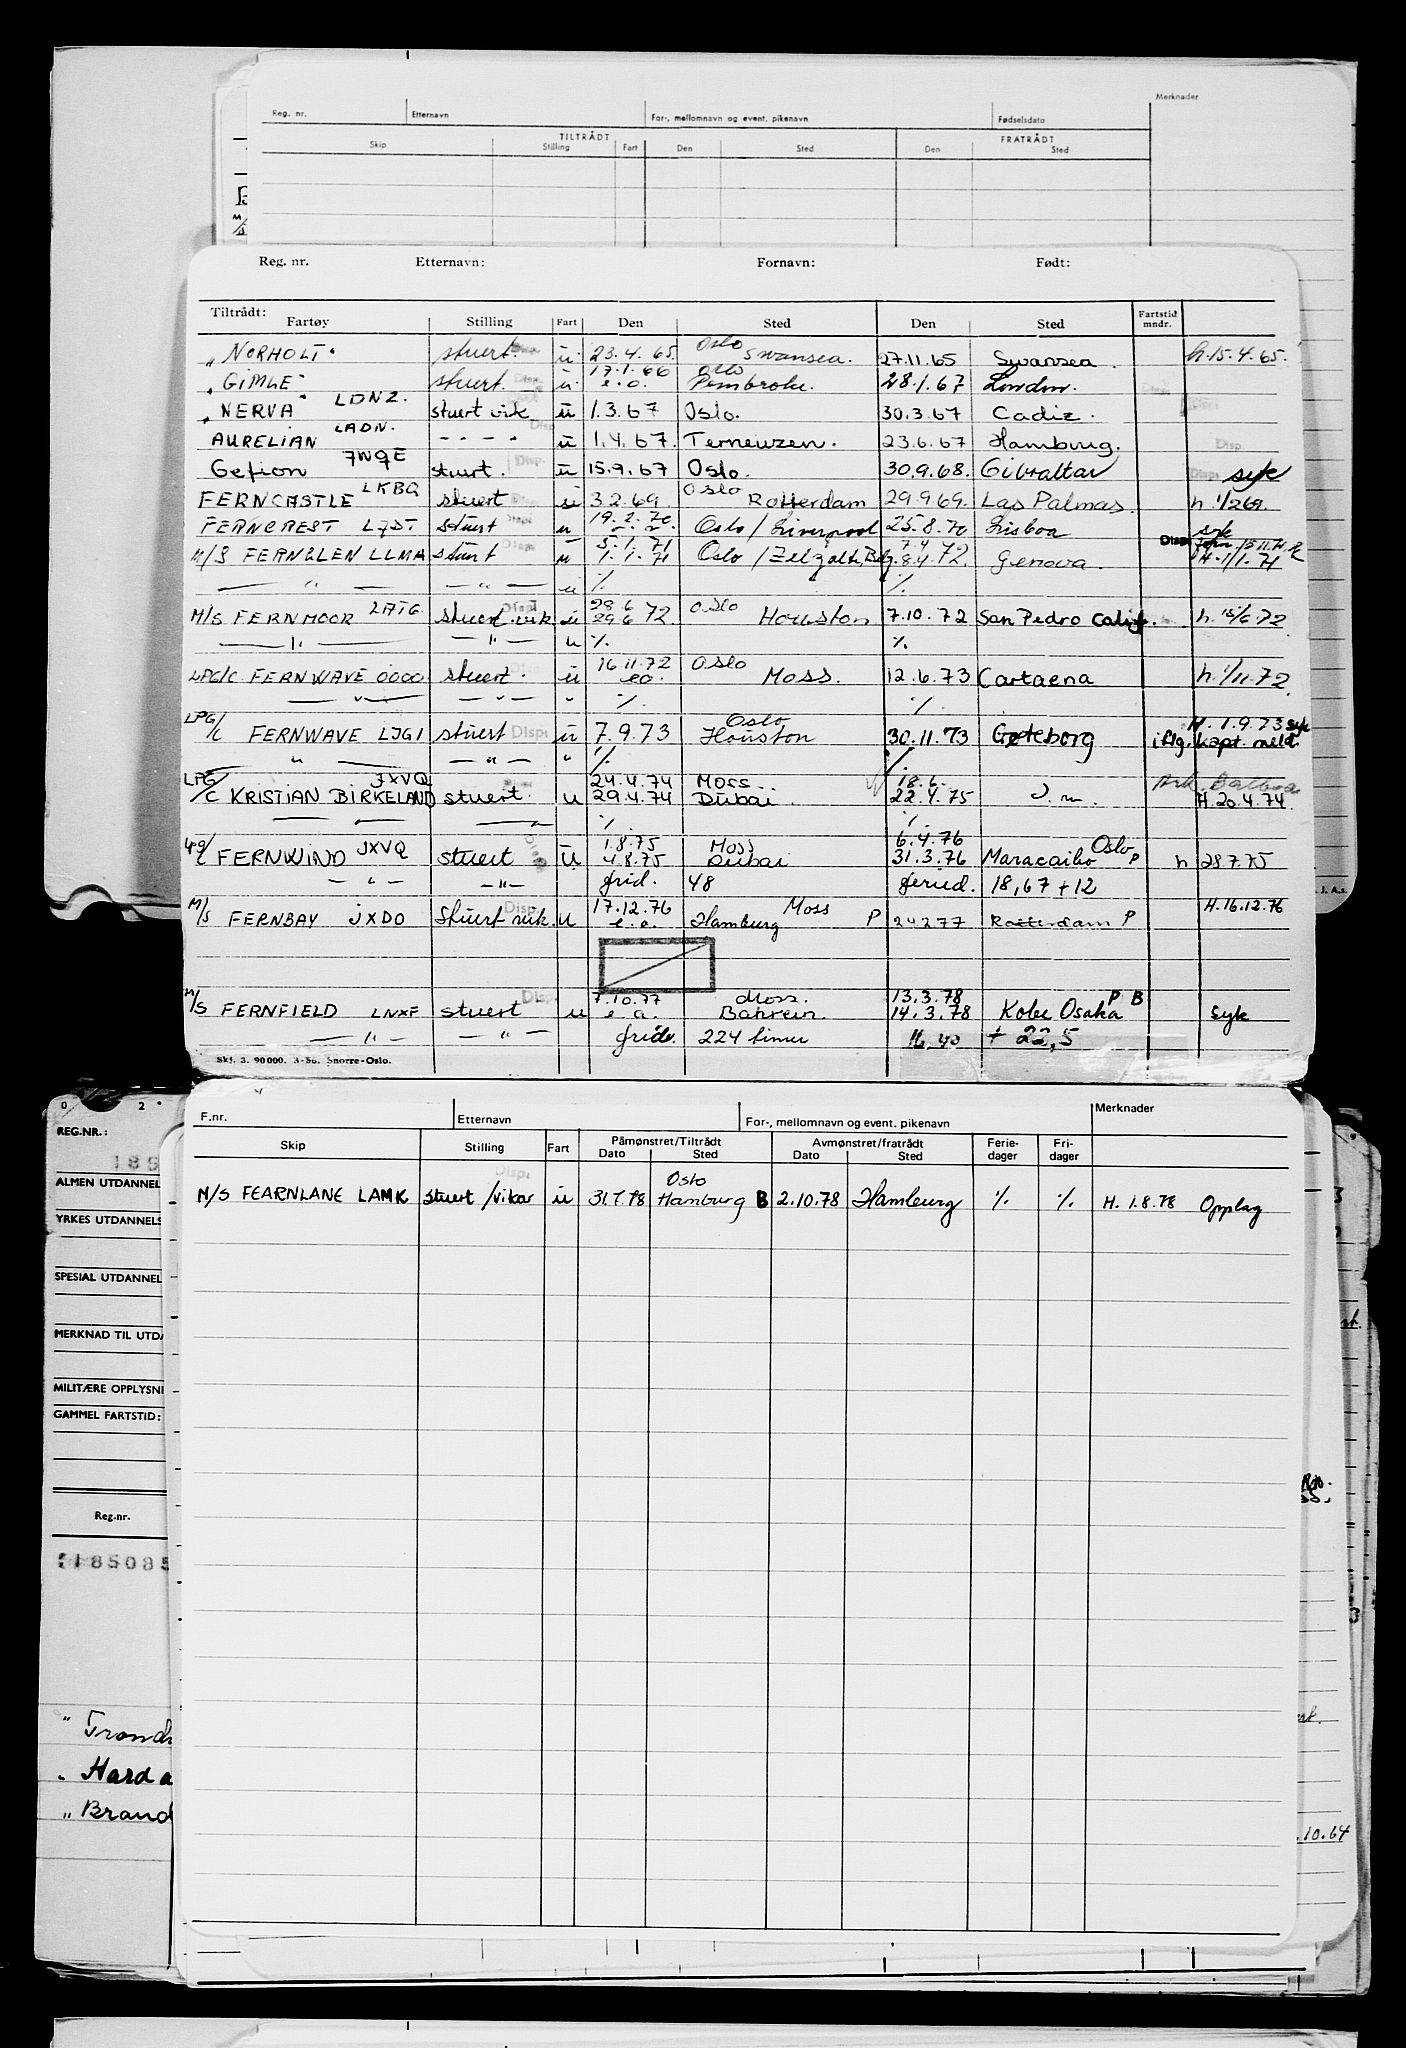 Merknader
Reg. nr. Etternavn For-, mellomnavn og event. pikenavn Fødselsdato
TILTRÅDT FRATRÅDT
Skip Stilling Fart Den Sted Den Sted
Reg. nr. Etternavn: Fornavn: Født:
Tiltrådt: Fartøy Stilling Fart Den Sted Den Sted Fartstid mndr.
"NORHOLT" stuert. Disp ü 23.4.65. Oslo Swansea. 27.11.65 Swansea h.15.4.65.
"GIMLE" stuert. Disp ü 17.1.66 e.o. Oslo Pembroke. 28.1.67 London.
"NERVA" LDNZ. stuert vik ü 1.3.67 Oslo. 30.3.67 Cadiz.
AURELIAN LADN. - - - " ü 1.4.67. Terneuzen. 23.6.67 Hamburg. Disp.
Gefion JWQE stuert. Disp. ü 15.9.67 Oslo. 30.9.68. Gibraltar Disp syk
FERNCASTLE LKBQ stuert ü 3.2.69. Oslo Rotterdam 29.9.69. Las Palmas. h. 1/2 69.
FERNCREST LJDT stuert u 19.2.70. Oslo / Liverpool 25.8.70 Lisboa syk
M/S FERNGLEN LLMA stuert Disp ü 5.1.71 7.1.71 Oslo / Zelzate, Belg. 7.4 8.4.72. Genova. Disp H.1/1.71
— " — — " — ü % %
M/S FERNMOOR LATG stuert.vik Disp ü 28.6 29.6 72 Oslo Houston 7.10.72 San Pedro Calif. h. 15/6.72
— " — — " — u % %
LPG/C FERNWAVE OOOO stuert. ü 16.11.72 e.o. Oslo Moss. 12.6.73 Cartaena h. 1/11.72.
" " " % %
LPG/C FERNWAVE LJGI stuert Disp ü 7.9.73 Oslo Houston 30.11.73 Gøteborg iflg. H. 1.9.73 syk kapt. meld.
" — " — " % %
LPG/C KRISTIAN BIRKELAND JXVQ stuert. u 24.4.74 29.4.74 Moss. Dubai. 18.6. 22.4.75 Balboa H.20.4.74
— " — — " — % %
LPG/C FERNWIND JXVQ stuert Disp ü 1.8.75 4.8.75 Moss Dubai 6.4.76 31.3.76 Oslo Maracaibo P h 28.7.75
— " — — " — frid. 48 feried. 18,67 + 12
M/S FERNBAY JXDO Stuert vik. Disp. u 17.12.76 e.o. Moss Hamburg P 24277 Rotterdam P H.16.12.76
M/S FERNFIELD LNXF stuert Disp u 7.10.77 e.o. Moss. Bahrein. 13.3.78 14.3.78 Kobe Osaka P B syk
— " — — " — frid. 224 timer 16,40 + 22,5
Skj. 3. 90000. 3-56. Snorre-Oslo.
J. A. s.
F.nr. Etternavn For-, mellomnavn og event. pikenavn Merknader
Skip Stilling Fart Påmønstret/Tiltrådt Dato Sted Avmønstret/fratrådt Dato Sted Ferie- dager Fri- dager
M/S FEARNLANE LAMK Stuert /vikar Disp. ü 31.7.78 Oslo Hamburg B 2.10.78 Hamburg % % H. 1.8.78 Opplag
0 2
REG.NR.:
185
ALMEN UTDANNEL
YRKES UTDANNELS
SPESIAL UTDANNEL
MERKNAD TIL UTDA
MILITÆRE OPPLYSNI
GAMMEL FARTSTID:
Reg.nr.
185085
" Trondh
" Harda
" Brand
.10.64